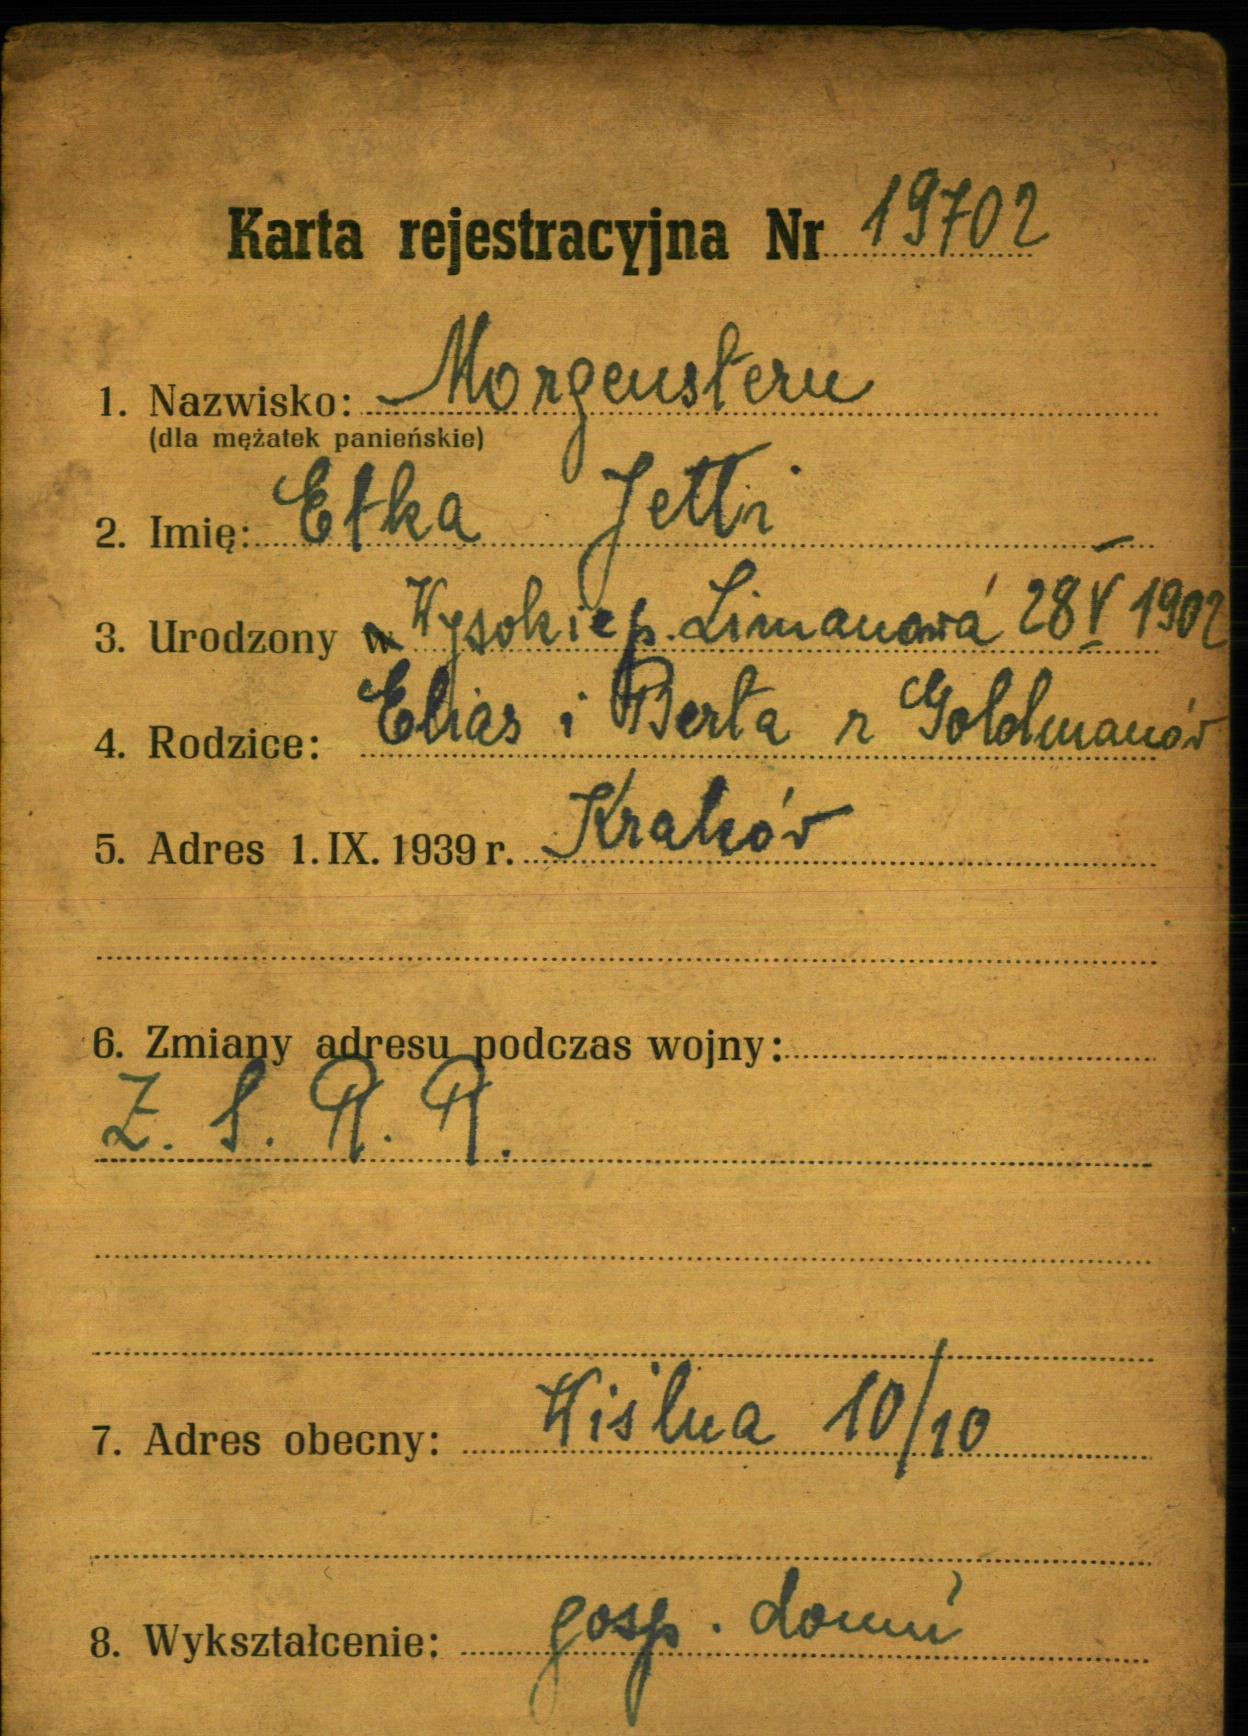 Karta rejestracyjna Nr 19702
1. Nazwisko: Morgenstern
(dla mężatek panieńskie)
2. Imię: Etka Jetti
3. Urodzony w Wysokie p. Limanowa 28 V 1902
4. Rodzice: Elias i Berta z Goldmanów
5. Adres 1. IX. 1939 r. Kraków
6. Zmiany adresu podczas wojny:
Z. S. R. R.
7. Adres obecny: Wiślna 10/10
8. Wykształcenie: gosp. domu